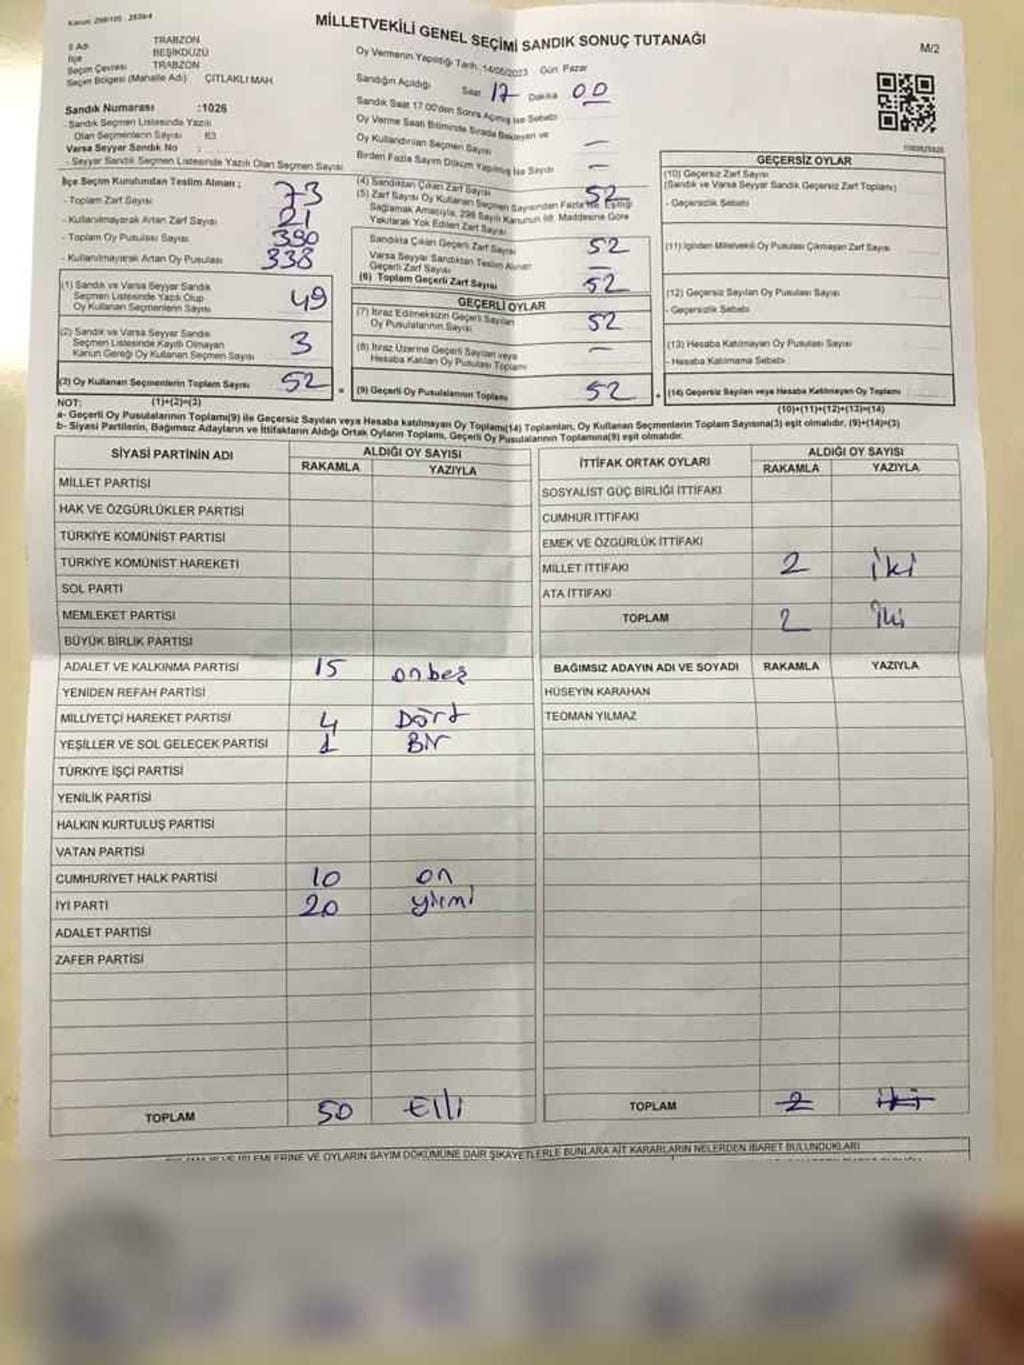 MİLLETVEKİLİ GENEL SEÇİMİ SANDIK SONUÇ TUTANAĞI
M/2
İl Adı TRABZON
İlçe BEŞİKDÜZÜ
Seçim Çevresi TRABZON
Seçim Bölgesi (Mahalle Adı) ÇITLAKLI MAH
Sandık Numarası :1026
- Sandık Seçmen Listesinde Yazılı
Olan Seçmenlerin Sayısı 63
Varsa Seyyar Sandık No :
- Seyyar Sandık Seçmen Listesinde Yazılı Olan Seçmen Sayısı
Oy Vermenin Yapıldığı Tarih: 14/05/2023 Gün: Pazar
Sandığın Açıldığı Saat 17 Dakika 00
Sandık Saat 17 00'den Sonra Açılmış İse Sebebi
Oy Verme Saati Bitiminde Sırada Bekleyen ve
Oy Kullandırılan Seçmen Sayısı —
Birden Fazla Sayım Döküm Yapılmış İse Sayısı —
İlçe Seçim Kurulundan Teslim Alınan ;
- Toplam Zarf Sayısı 73
- Kullanılmayarak Artan Zarf Sayısı 21
- Toplam Oy Pusulası Sayısı 390
- Kullanılmayarak Artan Oy Pusulası 338
(1) Sandık ve Varsa Seyyar Sandık
Seçmen Listesinde Yazılı Olup
Oy Kullanan Seçmenlerin Sayısı 49
(2) Sandık ve Varsa Seyyar Sandık
Seçmen Listesinde Kayıtlı Olmayan
Kanun Gereği Oy Kullanan Seçmen Sayısı 3
(3) Oy Kullanan Seçmenlerin Toplam Sayısı 52 =
NOT: (1)+(2)=(3)
(4) Sandıktan Çıkan Zarf Sayısı 52
(5) Zarf Sayısı Oy Kullanan Seçmen Sayısından Fazla İse, Eşitliği
Sağlamak Amacıyla, 298 Sayılı Kanunun 98. Maddesine Göre
Yakılarak Yok Edilen Zarf Sayısı
Sandıkta Çıkan Geçerli Zarf Sayısı 52
Varsa Seyyar Sandıktan Teslim Alınan
Geçerli Zarf Sayısı —
(6) Toplam Geçerli Zarf Sayısı 52
GEÇERLİ OYLAR
(7) İtiraz Edilmeksizin Geçerli Sayılan
Oy Pusulalarının Sayısı 52
(8) İtiraz Üzerine Geçerli Sayılan veya
Hesaba Katılan Oy Pusulası Toplamı —
(9) Geçerli Oy Pusulalarının Toplamı 52 +
GEÇERSİZ OYLAR
(10) Geçersiz Zarf Sayısı
(Sandık ve Varsa Seyyar Sandık Geçersiz Zarf Toplamı)
- Geçersizlik Sebebi
(11) İçinden Milletvekili Oy Pusulası Çıkmayan Zarf Sayısı
(12) Geçersiz Sayılan Oy Pusulası Sayısı
- Geçersizlik Sebebi
(13) Hesaba Katılmayan Oy Pusulası Sayısı
- Hesaba Katılmama Sebebi
(14) Geçersiz Sayılan veya Hesaba Katılmayan Oy Toplamı
(10)+(11)+(12)+(13)=(14)
a- Geçerli Oy Pusulalarının Toplamı(9) ile Geçersiz Sayılan veya Hesaba katılmayan Oy Toplamı(14) Toplamları, Oy Kullanan Seçmenlerin Toplam Sayısına(3) eşit olmalıdır, (9)+(14)=(3)
b- Siyasi Partilerin, Bağımsız Adayların ve İttifakların Aldığı Ortak Oyların Toplamı, Geçerli Oy Pusulalarının Toplamına(9) eşit olmalıdır.
SİYASİ PARTİNİN ADI ALDIĞI OY SAYISI
RAKAMLA YAZIYLA
MİLLET PARTİSİ
HAK VE ÖZGÜRLÜKLER PARTİSİ
TÜRKİYE KOMÜNİST PARTİSİ
TÜRKİYE KOMÜNİST HAREKETİ
SOL PARTİ
MEMLEKET PARTİSİ
BÜYÜK BİRLİK PARTİSİ
ADALET VE KALKINMA PARTİSİ 15 onbeş
YENİDEN REFAH PARTİSİ
MİLLİYETÇİ HAREKET PARTİSİ 4 Dört
YEŞİLLER VE SOL GELECEK PARTİSİ 1 Bir
TÜRKİYE İŞÇİ PARTİSİ
YENİLİK PARTİSİ
HALKIN KURTULUŞ PARTİSİ
VATAN PARTİSİ
CUMHURİYET HALK PARTİSİ 10 on
İYİ PARTİ 20 yirmi
ADALET PARTİSİ
ZAFER PARTİSİ
TOPLAM 50 Elli
İTTİFAK ORTAK OYLARI ALDIĞI OY SAYISI
RAKAMLA YAZIYLA
SOSYALİST GÜÇ BİRLİĞİ İTTİFAKI
CUMHUR İTTİFAKI
EMEK VE ÖZGÜRLÜK İTTİFAKI
MİLLET İTTİFAKI 2 iki
ATA İTTİFAKI
TOPLAM 2 iki
BAĞIMSIZ ADAYIN ADI VE SOYADI RAKAMLA YAZIYLA
HÜSEYİN KARAHAN
TEOMAN YILMAZ
TOPLAM 2 iki
İŞLEMLERİNE VE OYLARIN SAYIM DÖKÜMÜNE DAİR ŞİKAYETLERLE BUNLARA AİT KARARLARIN NELERDEN İBARET BULUNDUKLARI